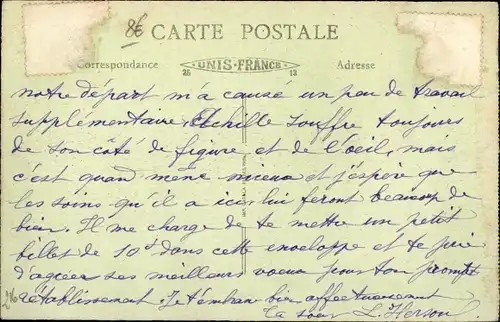 86
CARTE POSTALE
Correspondance
UNIS-FRANCE
Adresse
notre départ m'a cause un peu de travail
supplémentaire, Achille souffre toujours
de son côté de figure et de l'oeil, mais
c'est quand même mieux et j'espère que
les soins qu'il a ici lui feront beaucoup de
bien. Il me charge de te mettre un petit
billet de 10 dans cette enveloppe et te prie
d'agréer ses meilleurs voeux pour ton prompt
rétablissement. Je t'embrasse bien affectueusement
Ta soeur L. Herson